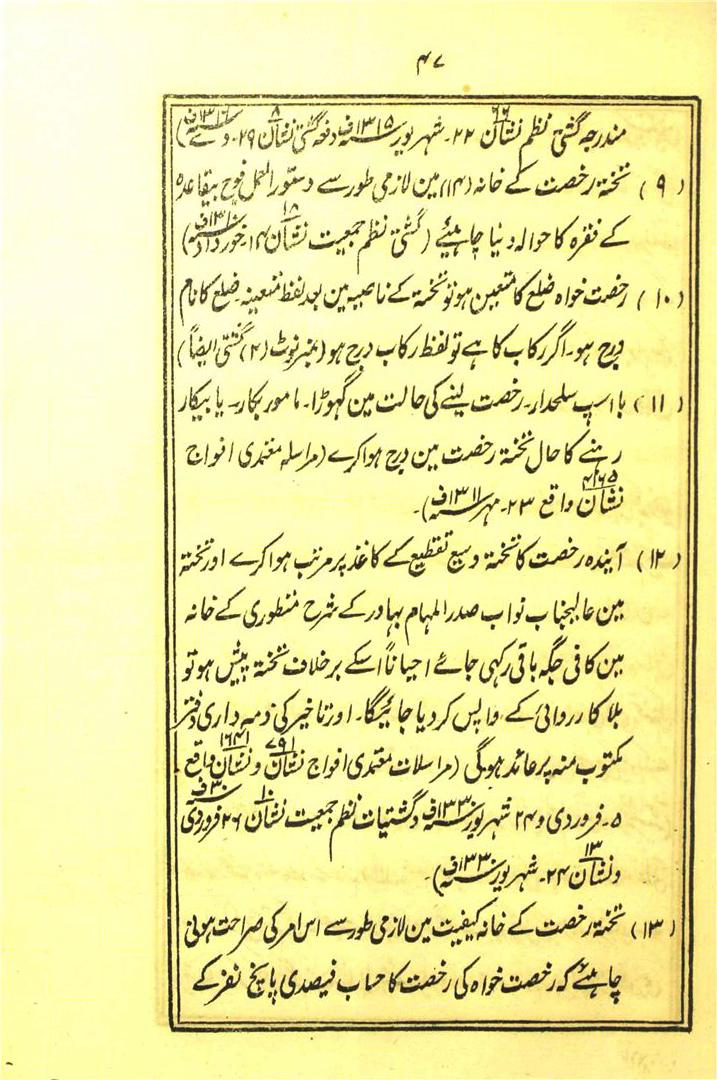 ۴۷
مندرجہ گشتی نظم نشان ۶۶ ۲۲۔ شہریور ۱۳۱۵ف دفعہ گشتی نشان ۸ ۲۹۔ دے ۱۳۱۶ف)
(۹) تختۂ رخصت کے خانہ (۱۴) مین لازمی طور سے دستور العمل فوج بیقاعدہ
کے فقرہ کا حوالہ دینا چاہیئے (گشتی نظم جمعیت نشان ۱۸ ۱۴۔ خورداد ۱۳۱۰ف)
(۱۰) رخصت خواہ ضلع کا متعین ہو تو تختہ کے ناصیہ مین بعد لفظ متعینہ ضلع کا نام
درج ہو۔ اگر رکاب کا ہے تو لفظ رکاب درج ہو (نمبر نوٹ (۲) گشتی ایضاً)
(۱۱) با اسپ سلحدار۔ رخصت لینے کی حالت مین گھوڑا۔ مامور بکار۔ یا بیکار
رہنے کا حال تختۂ رخصت مین درج ہوا کرے (مراسلہ معتمدی افواج
نشان ۴۲۶۵ واقع ۲۳۔ مہر ۱۳۱۱ف)۔
(۱۲) آیندہ رخصت کا تختہ وسیع تقطیع کے کاغذ پر مرتب ہوا کرے اور تختہ
مین عالیجناب نواب صدر المہام بہادر کے شرح منظوری کے خانہ
مین کافی جگہ باقی رکہی جائے احیاناً اسکے برخلاف تختہ پیش ہو تو
بلا کارروائی کے واپس کر دیا جائیگا۔ اور تاخیر کی ذمہ داری دفتر
مکتوب منہ پر عائد ہوگی (مراسلات معتمدی افواج نشان ۷۹۱ و نشان ۱۶۴۱ واقع
۵۔ فروردی و ۲۴ شہریور ۱۳۳۰ف و گشتیات نظم جمعیت نشان ۱۰ ۲۶ فروردی ۳۰ف
و نشان ۱۳ ۲۴۔ شہریور ۱۳۳۰ف)۔
(۱۳) تختۂ رخصت کے خانہ کیفیت مین لازمی طور سے اس امر کی صراحت ہونی
چاہیئے کہ رخصت خواہ کی رخصت کا حساب فیصدی پانچ نفر کے